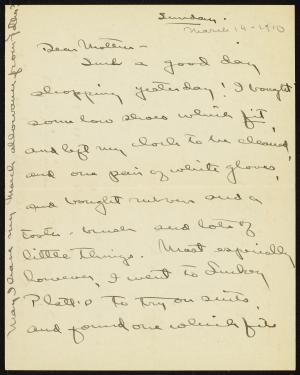 Sunday.
March 14 - 1910
Dear Mother -
Such a good day
shopping yesterday! I bought
some low shoes which fit,
and left my cloak to be cleaned,
and one pair of white gloves,
and bought rubbers and a
tooth-brush and lots of
little things. Most especially
however, I went to
Platt's to try on suits,
and found one which fits
May I have my March allowance from